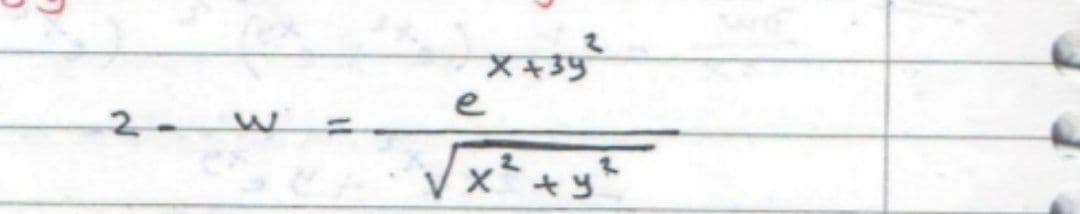 2- w = e^(x+3y²) / √(x²+y²)